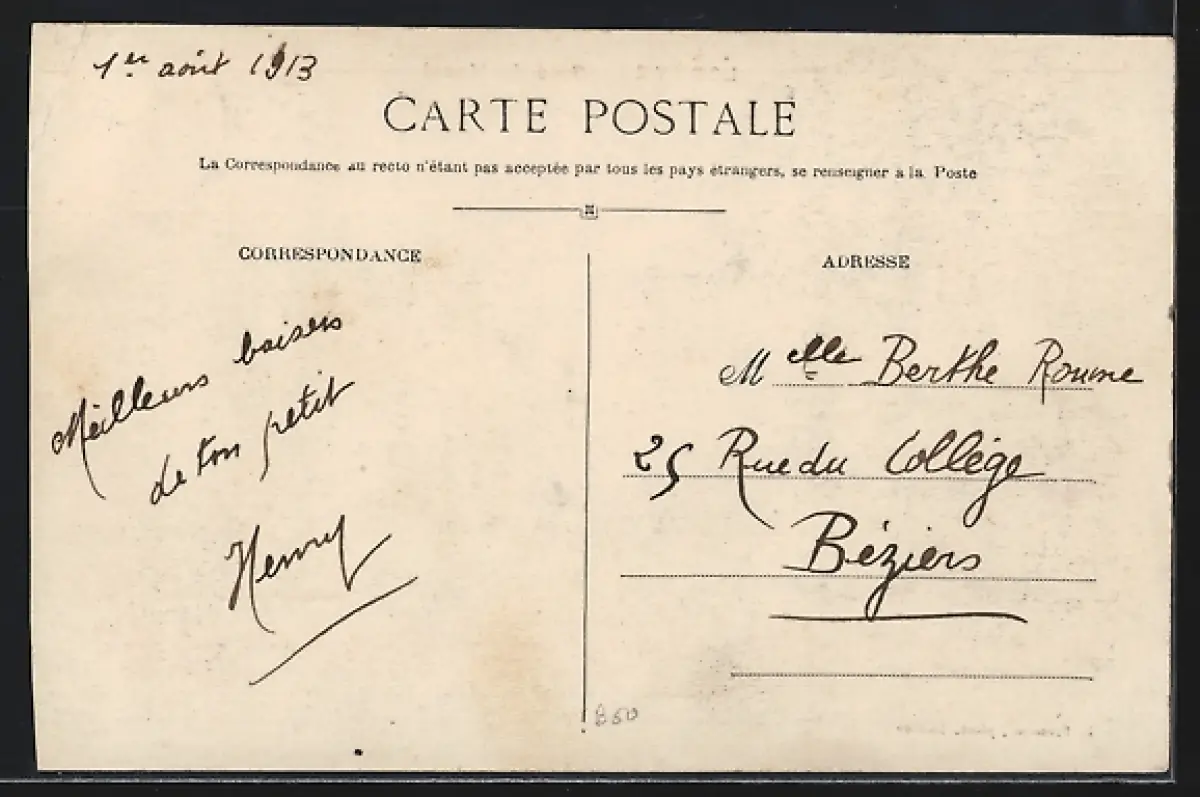 1er août 1913
CARTE POSTALE
La Correspondance au recto n'étant pas acceptée par tous les pays étrangers, se renseigner à la Poste
CORRESPONDANCE
Meilleurs baisers
de ton petit
Henry
ADRESSE
Melle Berthe Roume
25 Rue du Collège
Béziers
B50